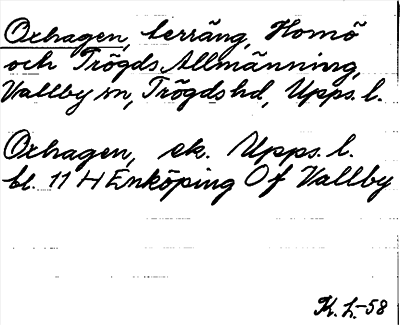 Oxhagen, terräng, Homö
och Trögds Allmänning,
Vallby sn, Trögds hd, Upps. l.
Oxhagen, ek. Upps. l.
bl. 11 H Enköping Of Vallby
K. L. -58